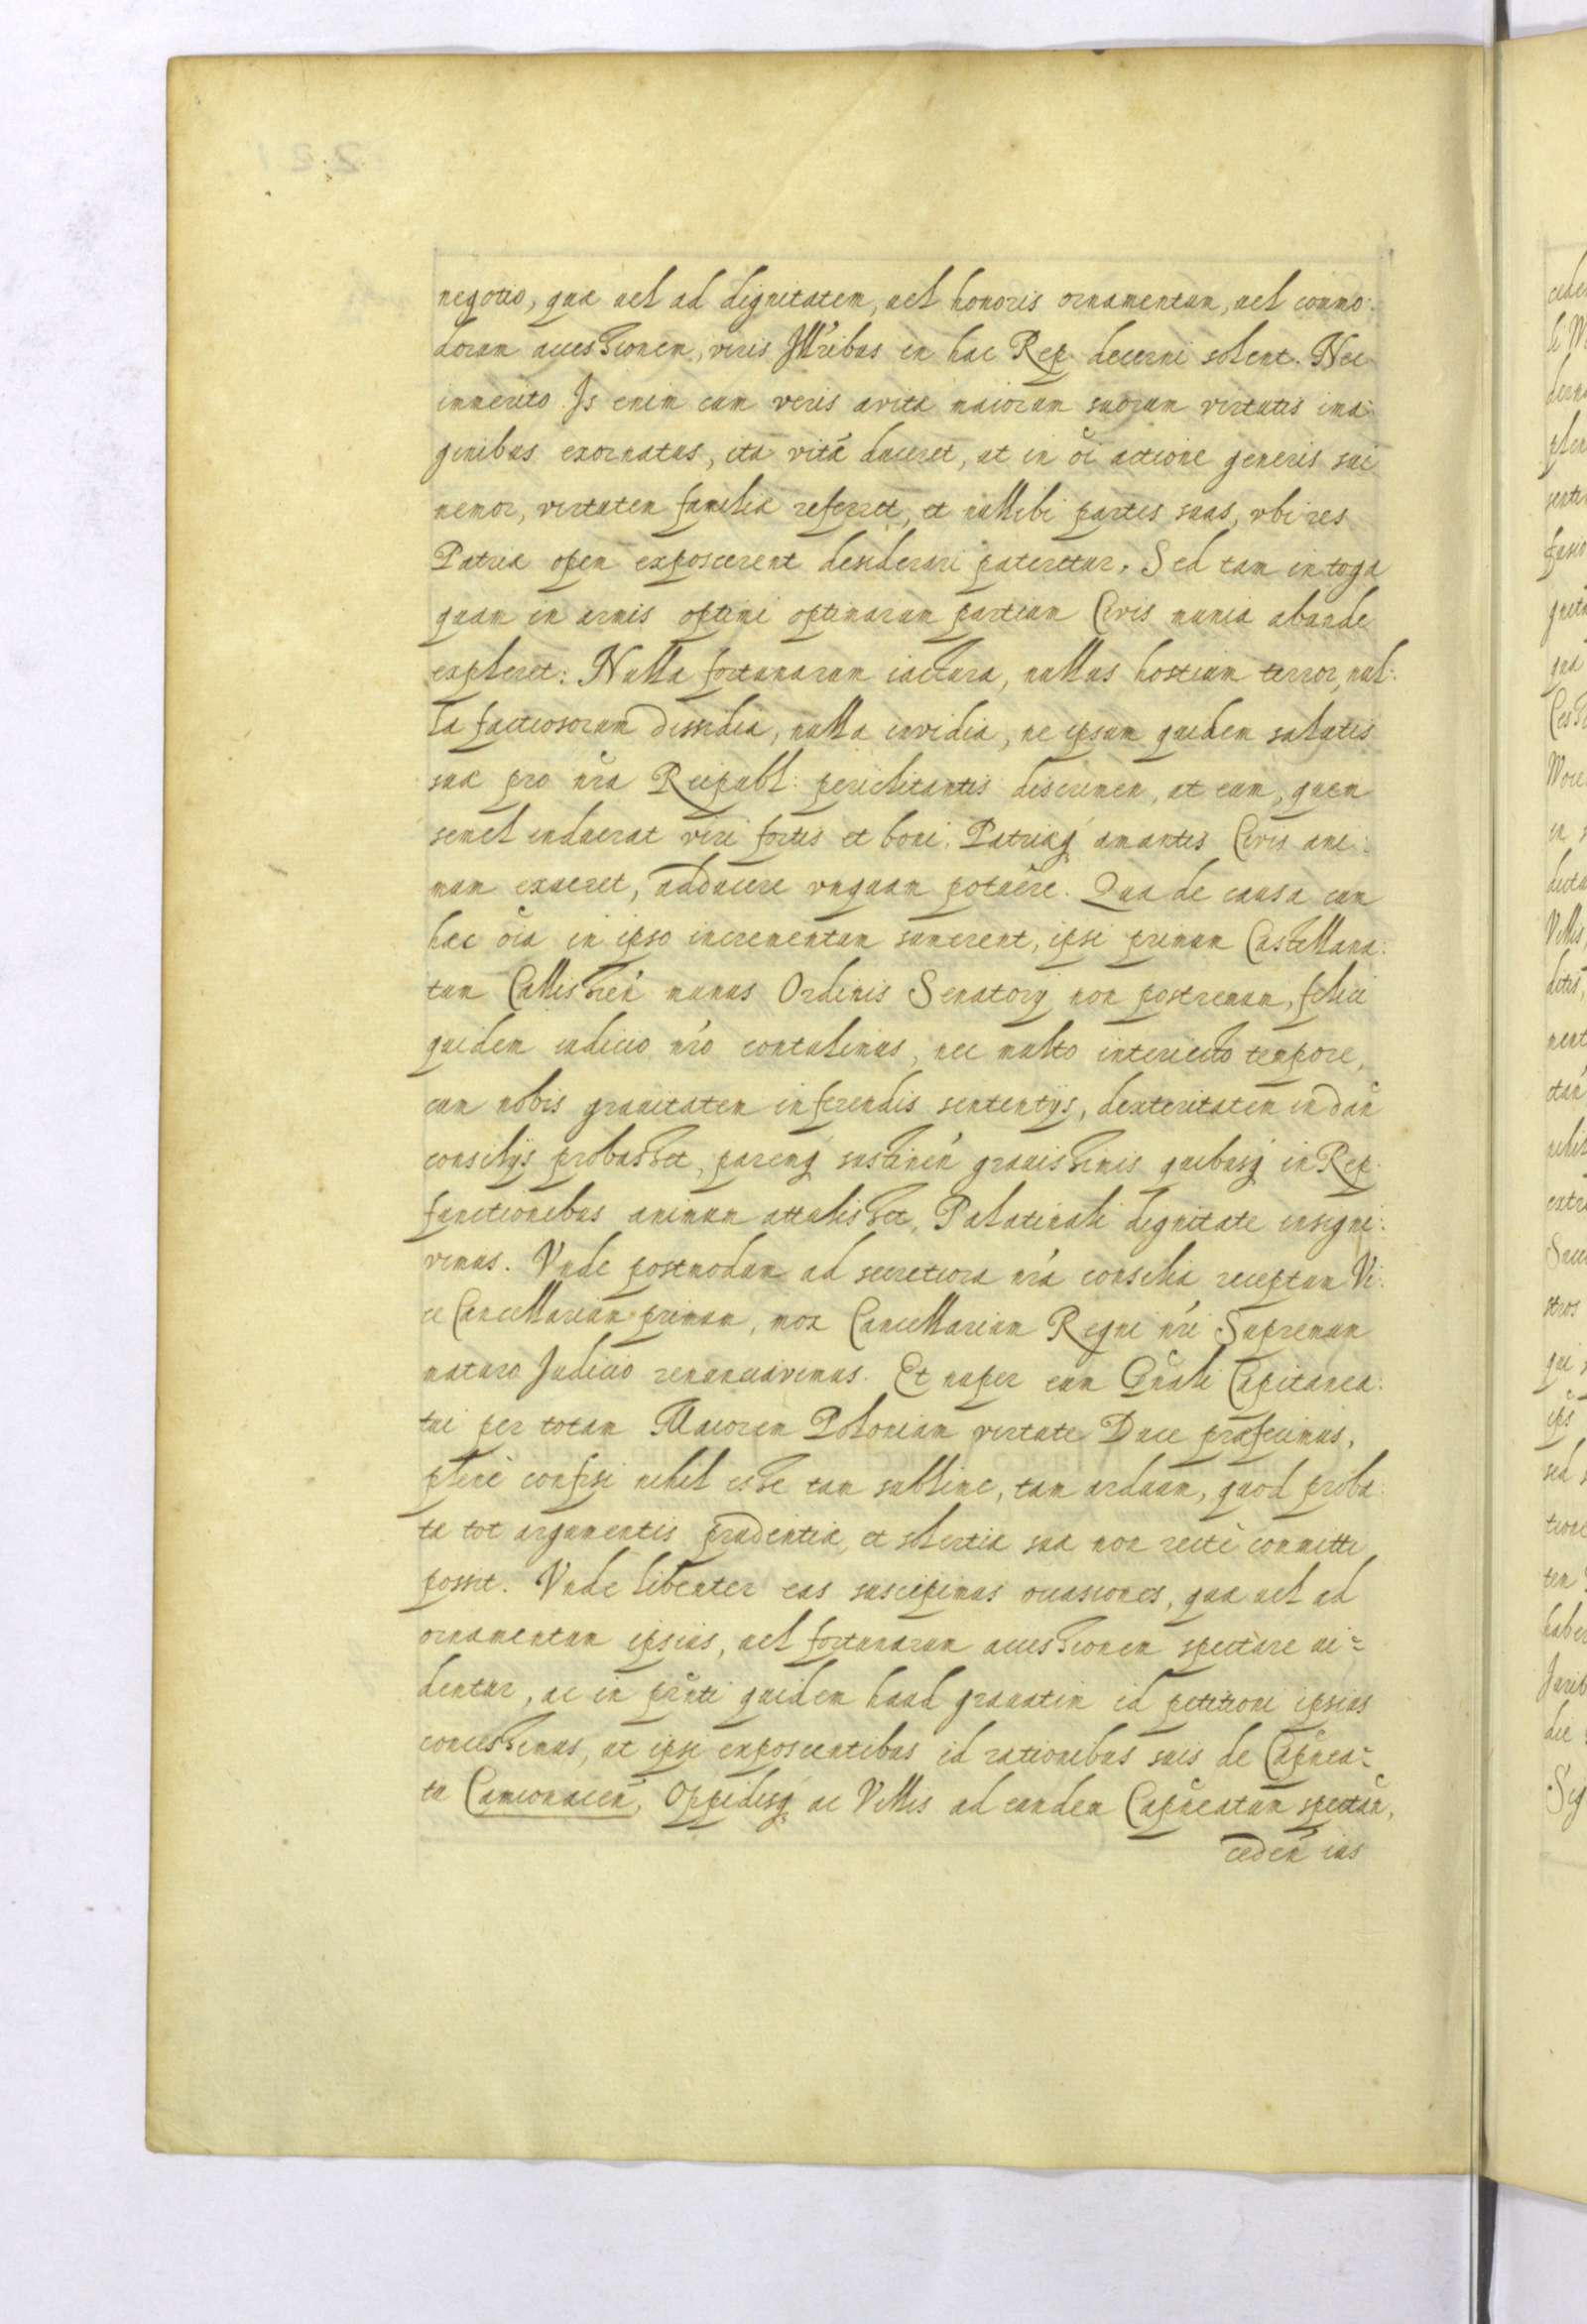 negotio, quæ uel ad dignitatem, uel honoris ornamentum, uel commo:
dorum accessionem, viris Illribus in hac Rep. decerni solent. Nec
immerito Is enim cum veris avitæ maiorum suorum virtutis ima:
ginibus exornatus, ita vitã duceret, ut in oi actione generis sui
memor, virtutem familiæ referret, et nullibi partes suas, vbi res
Patriæ opem exposcerent desiderari pateretur. Sed tam in toga
quam in armis optimi optimarum partium Civis munia abunde
expleret: Nulla fortunarum iactura, nullus hostium terror, nul:
la factiosorum dissidia, nulla invidia, ne ipsum quidem salutis
suæ pro nra Reipubl: periclitantis discrimen, ut eum, quem
semel induerat viri fortis et boni, Patriæq amantis Civis ani:
mum exueret, adducere vnquam potuere. Qua de causa cum
hæc oia in ipso incrementum sumerent, ipsi primum Castellana:
tum Callissien munus Ordinis Senatorij non postremum, felici
quidem iudicio nro contulimus, nec multo interiecto tempore,
cum nobis grauitatem in ferendis sententijs, dexteritatem in dañ
consilijs probasset, paremq sustineñ grauissimis quibusq in Rep.
functionibus animum attulisset, Palatinali dignitate insigni:
vimus. Vnde postmodum ad secretiora nra consilia receptum Vi:
ce Cancellarium primum, mox Cancellarium Regni nri Supremum
maturo Judicio renunciavimus. Et nuper eum Gnali Capitanea:
tui per totam Maiorem Poloniam virtute Duce præfecimus,
plene confisi nihil esse tam sublime, tam arduum, quod proba:
ta tot argumentis prudentiæ, et solertiæ suæ non recte committi
possit. Vnde libenter eas suscipimus occasiones, quæ uel ad
ornamentum ipsius, uel fortunarum accessionem spectare ui=
dentur, ac in pñti quidem haud grauatim id petitioni ipsius
concessimus, ut ipsi exposcentibus id rationibus suis de Capnea=
tu Camionaceñ, Oppidisq ac Villis ad eundem Capneatum spectañ,
cedeñ ius